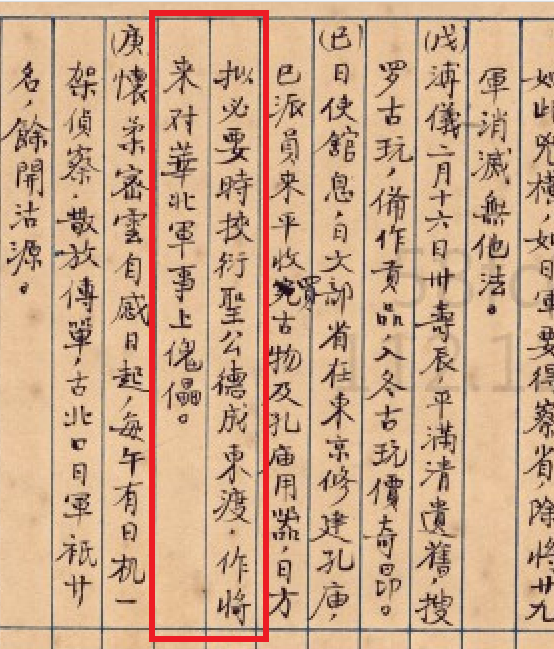 如此兇橫，如日軍要得察省，除將廿九
軍消滅無他法。
(戊)溥儀二月十六日卅壽辰，平滿清遺舊，搜
罗古玩，備作貢品，入冬古玩價奇昂。
(己)日使館息，日文部省在東京修建孔庙，
已派員来平收買古物及孔庙用器，日方
拟必要時挾衍聖公德成東渡，作將
来对華北軍事上傀儡。
(庚)懷柔密雲自感日起，每午有日机一
架偵察，散放傳單，古北口日軍祇廿
名，餘開沽源。